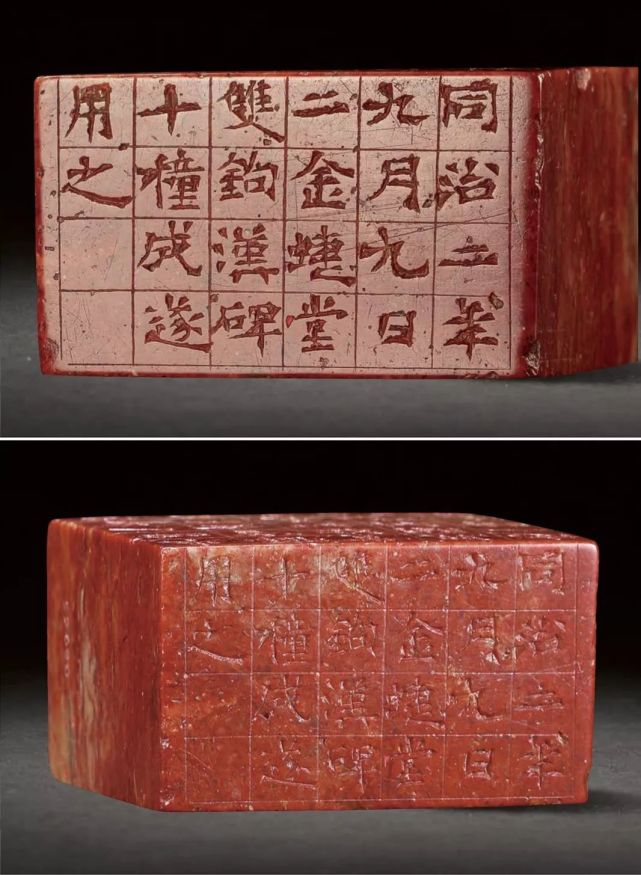 同治二年
九月九日
二金蜨堂
雙鉤漢碑
十穜成遂
用之
同治二年
九月九日
二金蜨堂
雙鉤漢碑
十穜成遂
用之